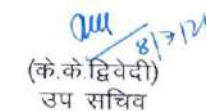 8/7/21
(के.के.द्विवेदी)
उप सचिव